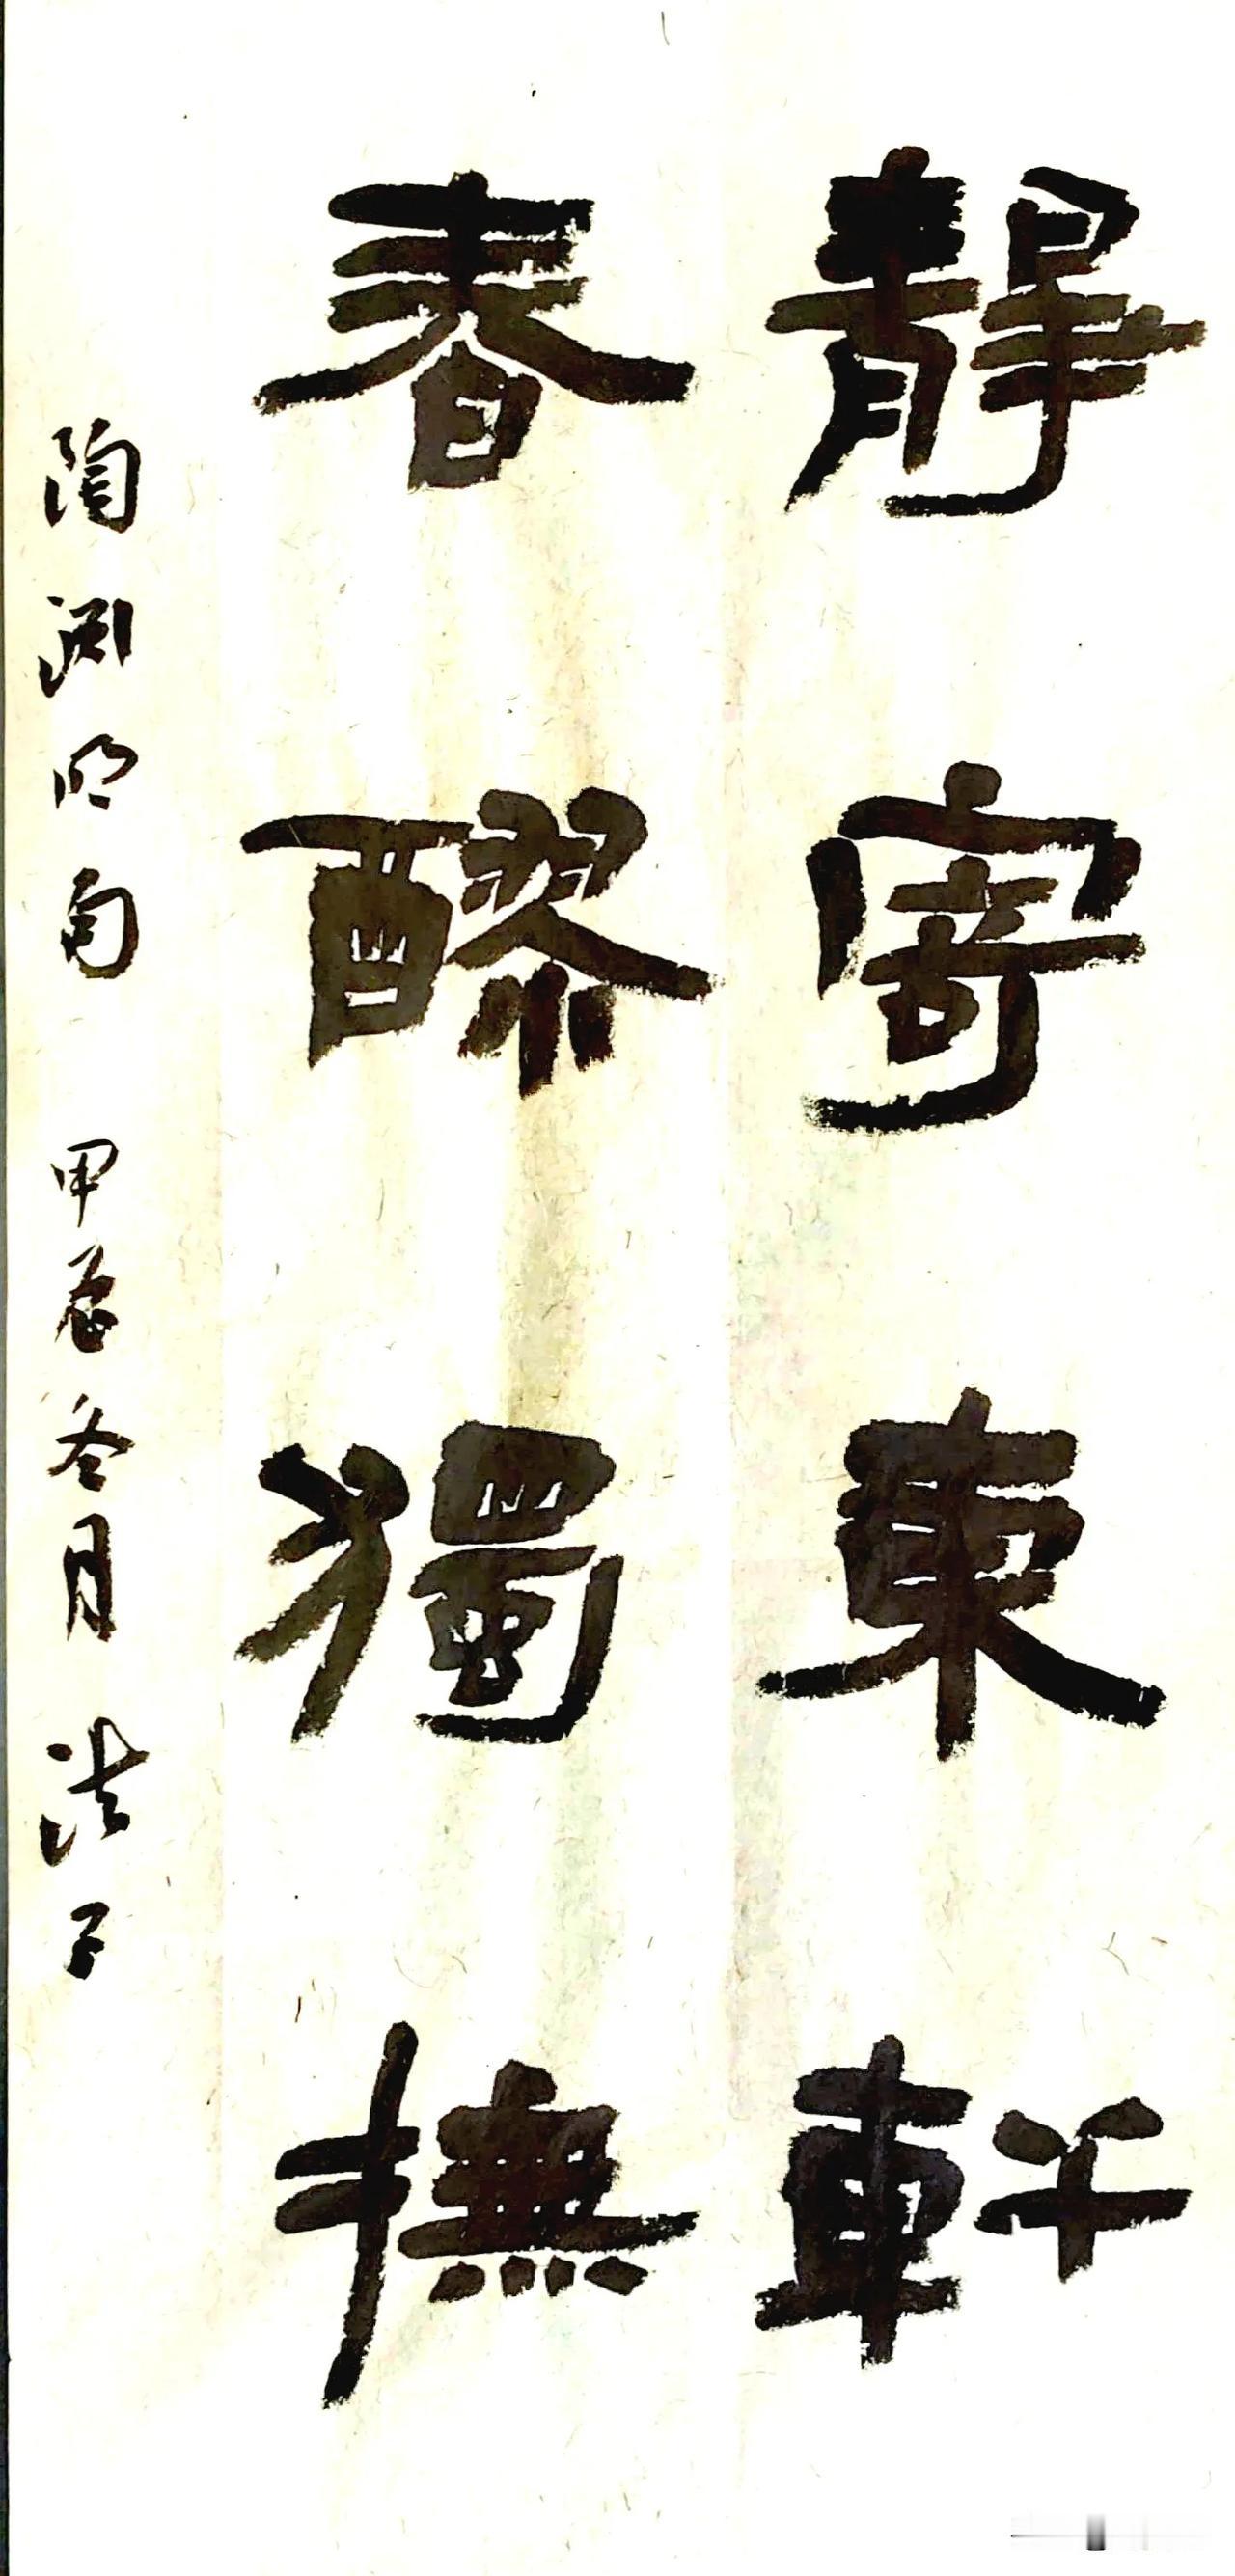 靜寄東軒
春醪獨撫
陶渊明句 甲辰冬月